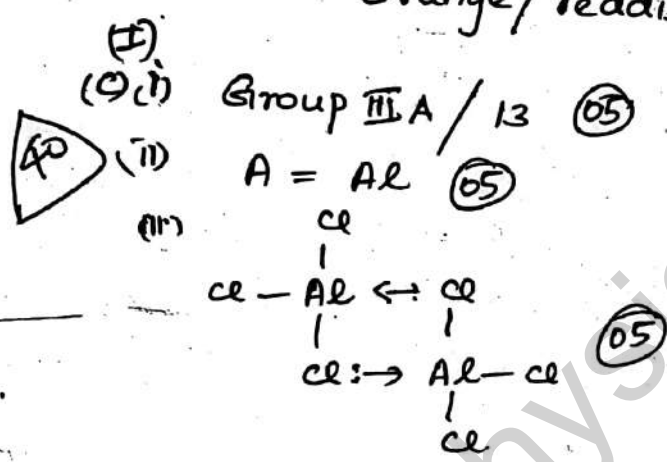 (I)
(C) (i) Group III A / 13 (05)
40 (ii) A = Al (05)
(iii) Cl
|
Cl — Al ← :Cl
| |
Cl:→ Al — Cl (05)
|
Cl